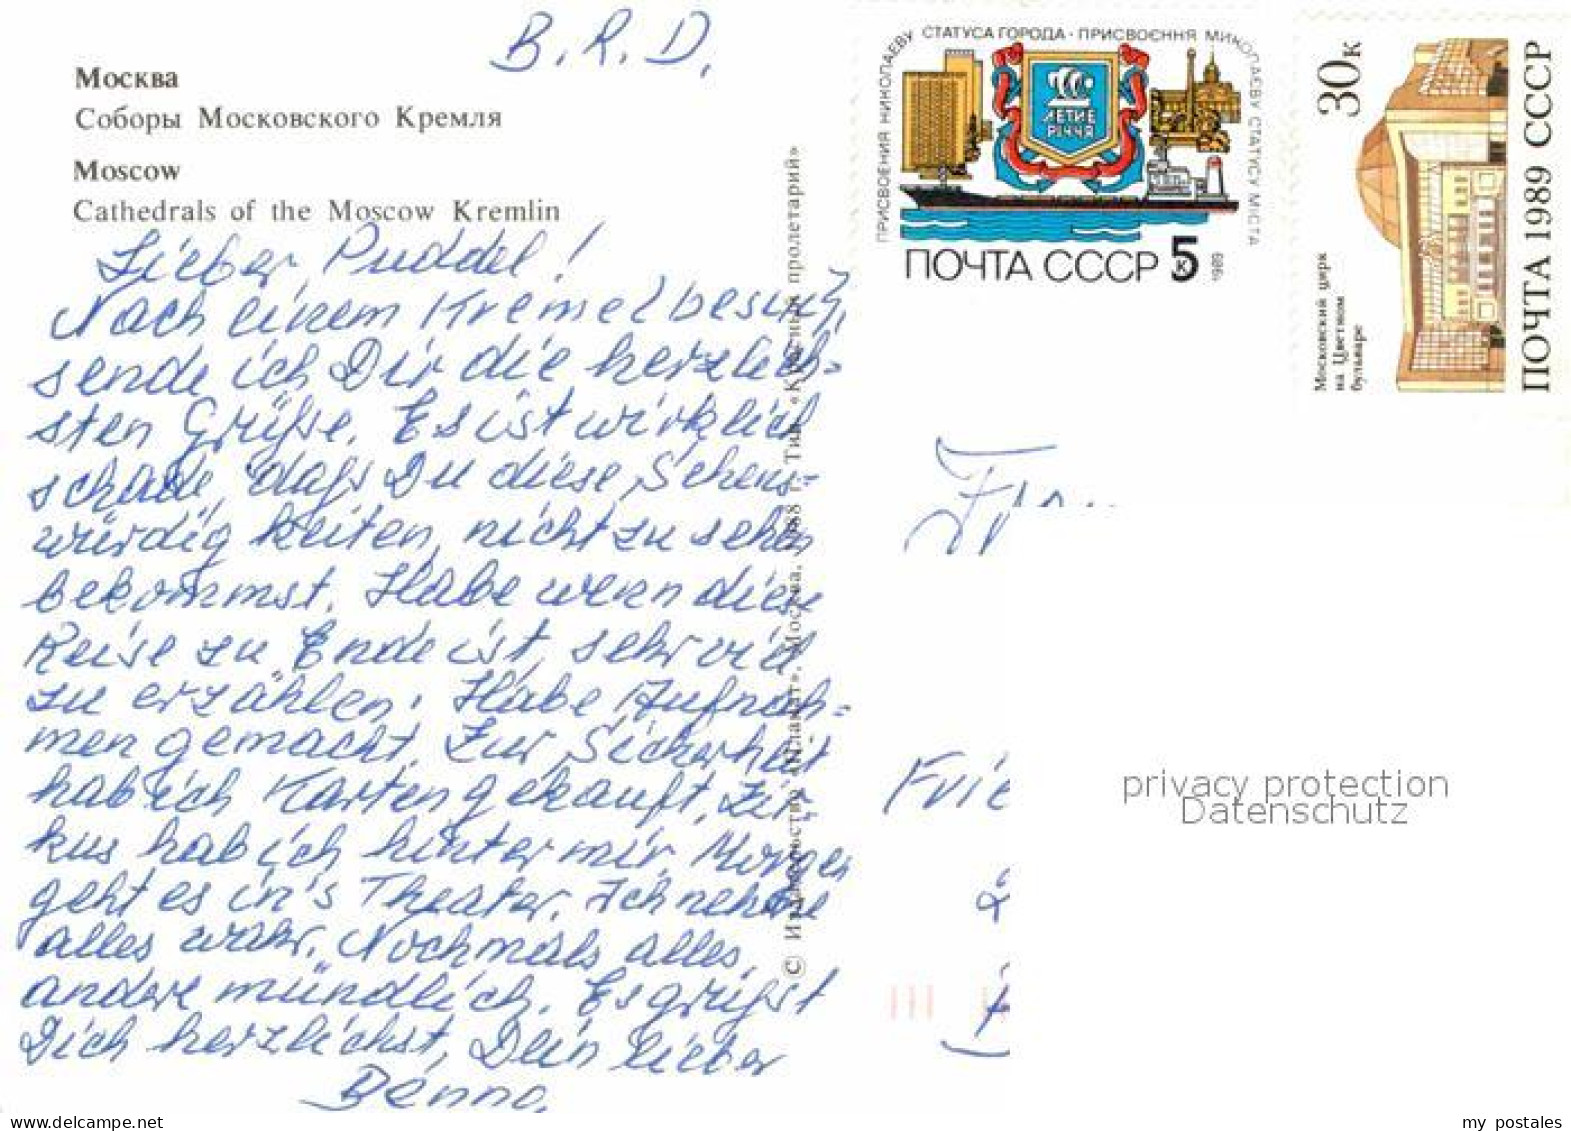 B.R.D.
Москва
Соборы Московского Кремля
Moscow
Cathedrals of the Moscow Kremlin
Lieber Puddel!
Nach einem Kremelbesuch,
sende ich Dir die herzlich=
sten Grüße. Es ist wirklich
schade, daß Du diese Sehens=
würdigkeiten, nicht zu sehen
bekommst. Habe wenn diese
Reise zu Ende ist, sehr viel
zu erzählen. Habe Aufnah=
men gemacht. Zur Sicherheit
hab ich Karten gekauft. Zir-
kus hab ich hinter mir. Morgen
geht es in's Theater. Ich nehme
alles wahr. Nochmals alles,
andere mündlich. Es grüßt
Dich herzlichst, Dein lieber
Benno.
© Издательство «Плакат». Москва. 1988 г. Тип. «Красный пролетарий»
ПРИСВОЕНИЯ НИКОЛАЕВУ СТАТУСА ГОРОДА · ПРИСВОЄННЯ МИКОЛАЄВУ СТАТУСУ МІСТА
ЛЕТИЕ
РІЧЧЯ
ПОЧТА СССР 5к
1989
30к
Московский цирк
на Цветном
бульваре
ПОЧТА 1989 СССР
Frie
privacy protection
Datenschutz
www.delcampe.net
my_postales